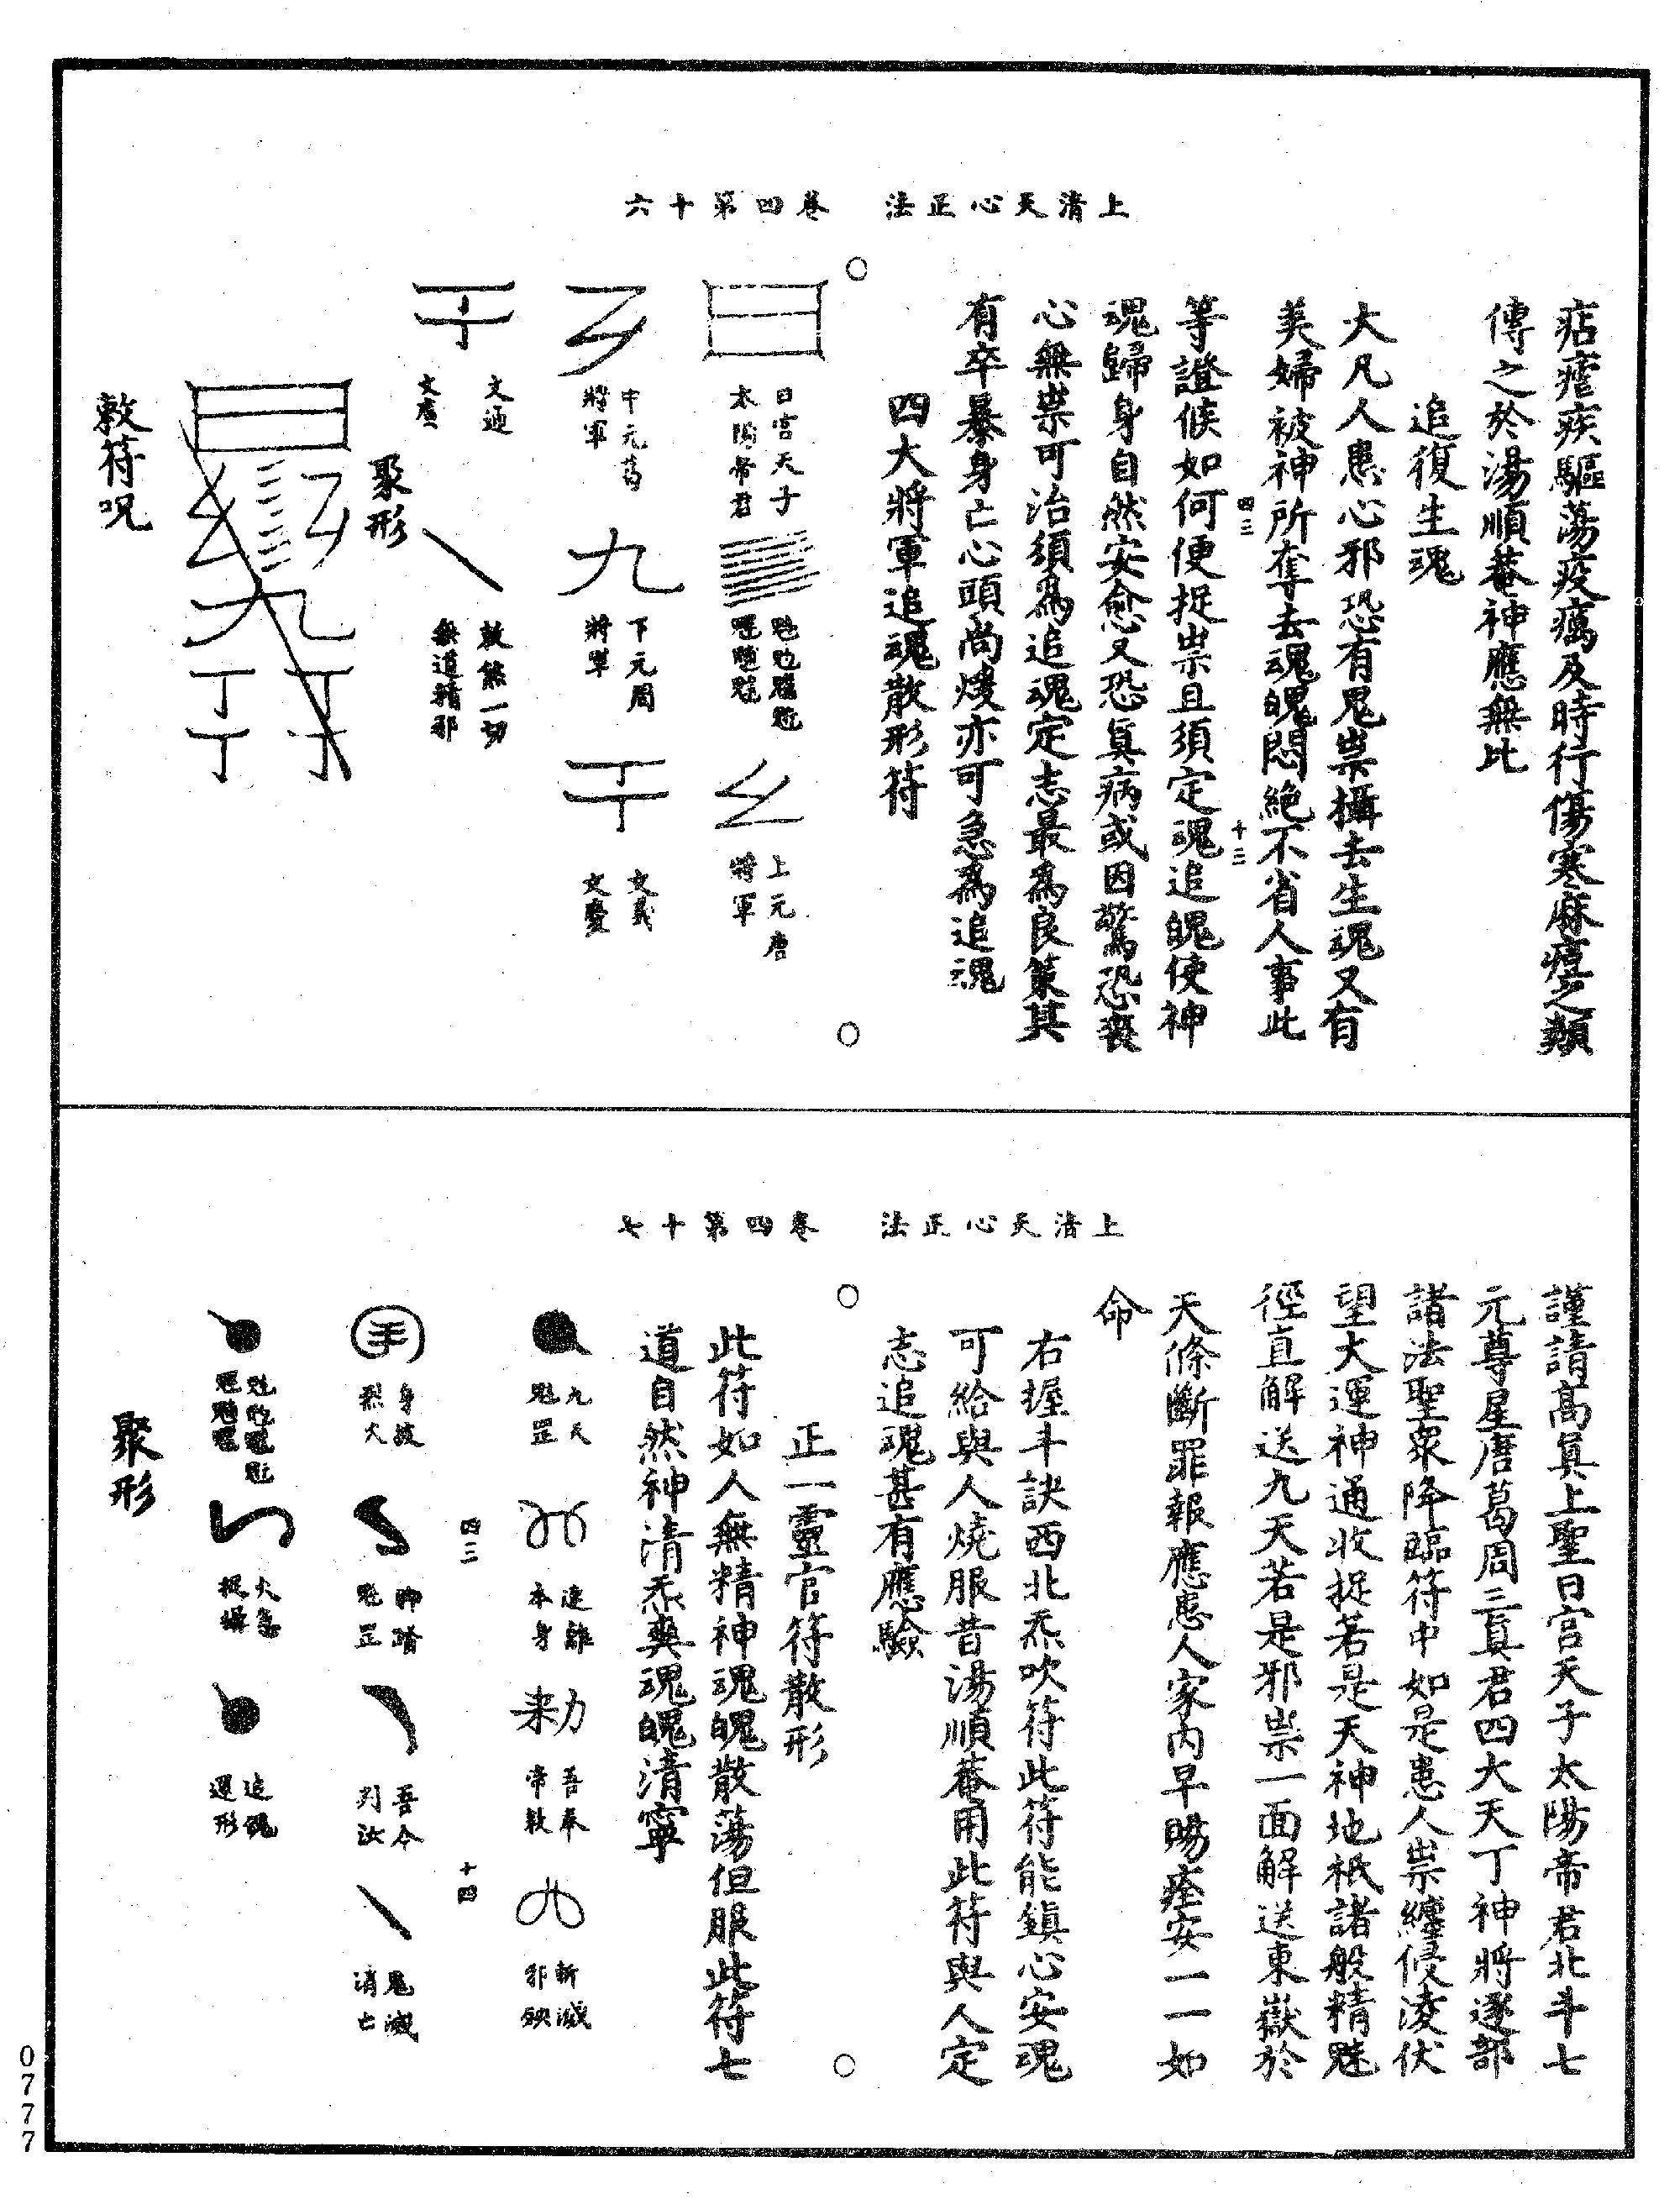 上清天心正法　卷四第十六
痁瘧疾驅蕩疫癘及時行傷寒麻痘之類
傳之於湯順菴神應無比
追復生魂
大凡人患心邪恐有鬼祟攝去生魂又有
美婦被神所奪去魂魄悶絕不省人事此
四三　十三
等證候如何便捉祟且須定魂追魄使神
魂歸身自然安愈又恐真病或因驚恐喪
心無祟可治須爲追魂定志最爲良策其
有卒暴身亡心頭尚煖亦可急爲追魂
四大將軍追魂散形符
日宮天子
太陽帝君
上元唐
將軍
中元葛
將軍
下元周
將軍
文義
文慶
文通
文廣
敕熊一切
無道精邪
聚形
敕符呪
上清天心正法　卷四第十七
謹請高真上聖日宮天子太陽帝君北斗七
元尊星唐葛周三真君四大天丁神將逐部
諸法聖衆降臨符中如是患人祟纏侵凌伏
望大運神通收捉若是天神地祇諸般精魅
徑直解送九天若是邪祟一面解送東嶽於
天條斷罪報應患人家內早賜痊安一一如
命
右握斗訣西北炁吹符此符能鎮心安魂
可給與人燒服昔湯順菴用此符與人定
志追魂甚有應驗
正一靈官符散形
此符如人無精神魂魄散蕩但服此符七
道自然神清炁爽魂魄清寧
九天
魁罡
速離
本身
吾奉
帝敕
斬滅
邪殃
四三　十四
身披
烈火
脚踏
魁罡
吾今
列汝
鬼滅
消亡
火急
捉攝
追魂
還形
聚形
0777